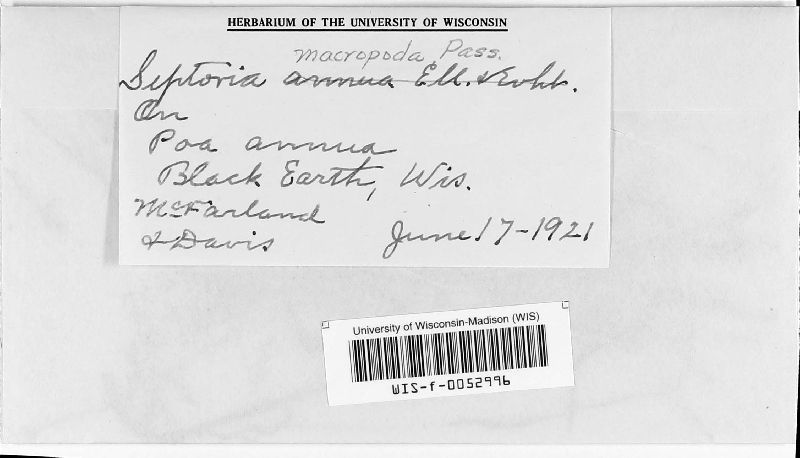 HERBARIUM OF THE UNIVERSITY OF WISCONSIN
macropoda Pass.
Septoria annua Ell. & Evht.
On
Poa annua
Black Earth, Wis.
McFarland
& Davis June 17-1921
University of Wisconsin-Madison (WIS)
WIS-f-0052996